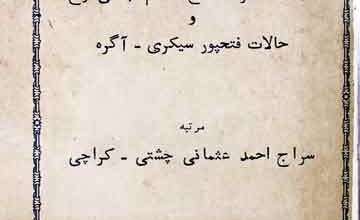 و
حالات فتحپور سیکری - آگرہ
مرتبہ
سراج احمد عثمانی چشتی - کراچی